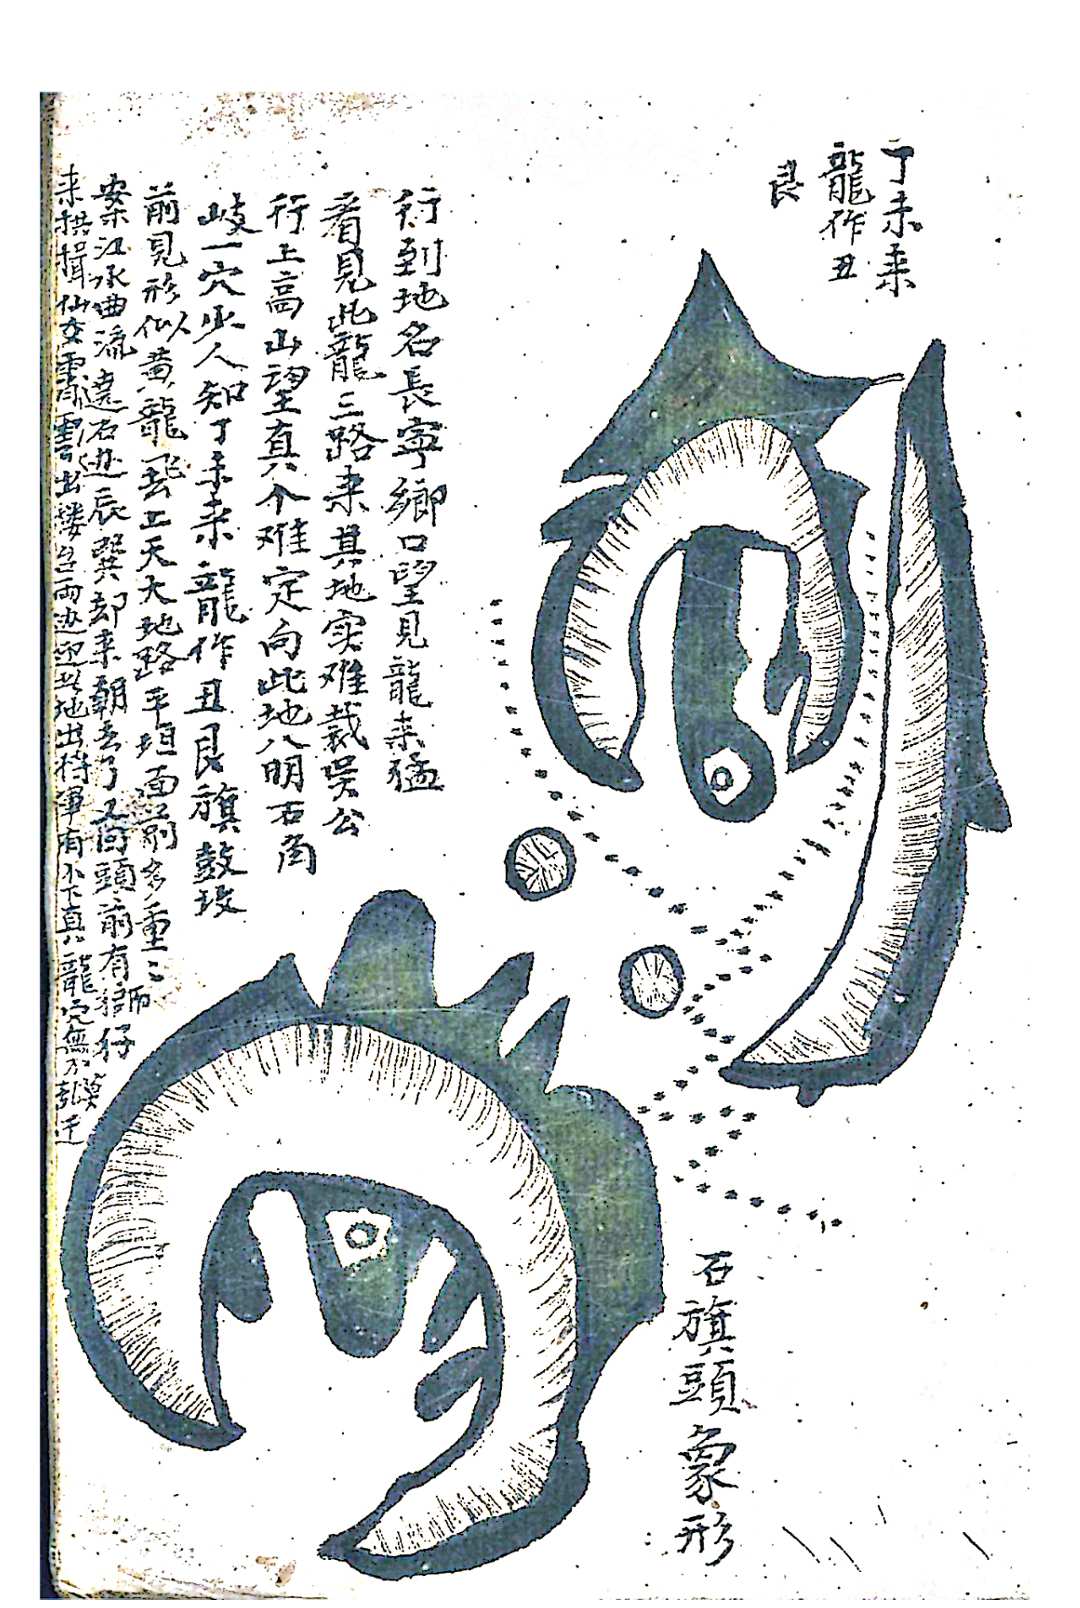 丁未来
龍作丑
艮
行到地名長寧鄉口望見龍来猛
看見此龍三路来其地实难裁吴公
行上高山望真个难定向此地八明石角
岐一穴少人知丁未来龍作丑艮旗鼓
前見形似黄龍飛去工天大地路平坦面前多重
案江水曲流遶石边辰巽却来朝 头前有 仔
来拱揖仙女 雲出 两边迎此地出将軍有 下真龍穴無
石旗頭象形